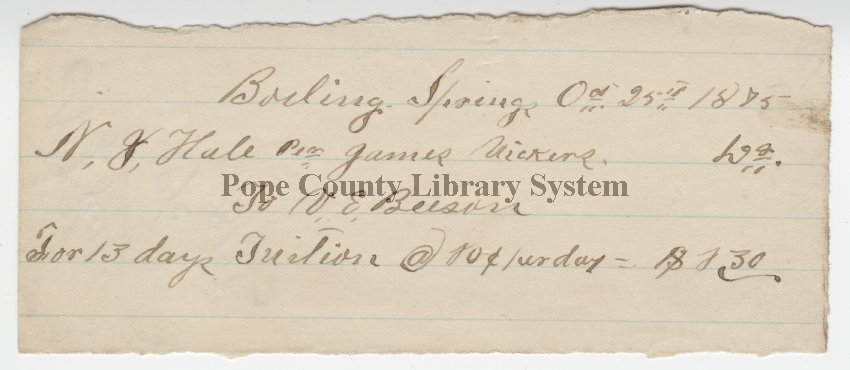 Boiling Springs Oct. 25th 1875
N. J. Hale Per James Vickers. Dr.
Pope County Library System
To W. E. Beeson
For 13 days Tuition @ 10¢ per day = $1.30